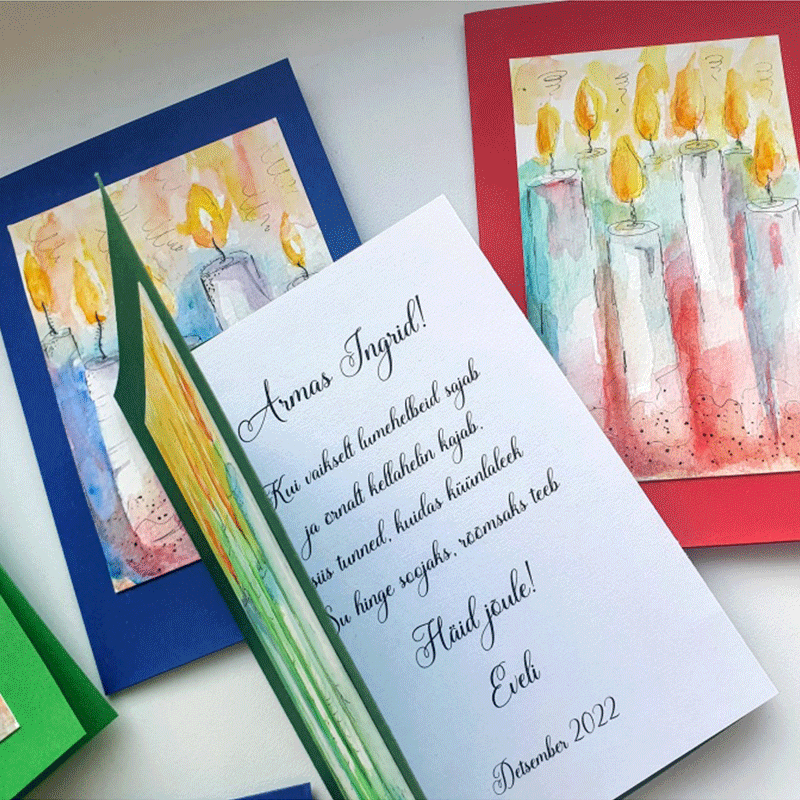 Armas Ingrid!
Kui vaikselt lumehelbeid sajab
ja õrnalt kellahelin kajab.
siis tunned, kuidas küünlaleek
Su hinge soojaks, rõõmsaks teeb
Häid jõule!
Eveli
Detsember 2022